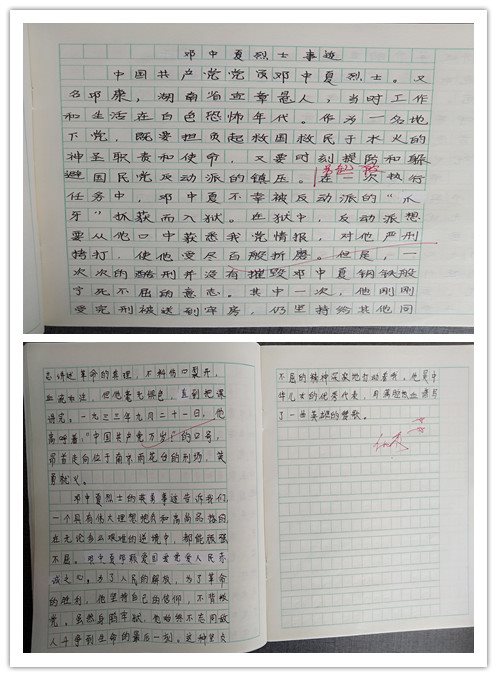 邓中夏烈士事迹
中国共产党党员邓中夏烈士。又
名邓康，湖南省宜章县人，当时工作
和生活在白色恐怖年代。作为一名地
下党，既要担负起救国救民于水火的
神圣职责和使命，又要时刻提防和躲
避国民党反动派的镇压。在一次执行
任务中，邓中夏不幸被反动派的“爪
牙”抓获而入狱。在狱中，反动派想
要从他口中获悉我党情报，对他严刑
拷打，使他受尽百般折磨。但是，一
次次的酷刑并没有摧毁邓中夏钢铁般
宁死不屈的意志。其中一次，他刚刚
受完刑被送到牢房，仍坚持给其他同
志讲述革命的真理，不料伤口裂开，
血流如注，但他毫无惧色，直到把课
讲完。一九三三年九月二十一日，他
高呼着：“中国共产党万岁”的口号，
昂首走向位于南京雨花台的刑场，英
勇就义。
邓中夏烈士的英勇事迹告诉我们，
一个具有伟大理想抱负和高尚品格的
在无论多么艰难的逆境中，都能很强
不屈。邓中夏那颗爱国爱党爱人民赤
诚之心，为了人民的解放，为了革命
的胜利，他坚持自己的信仰，不背叛
党。虽然身陷牢狱，他始终不忘同敌
人斗争到生命的最后一刻。这种坚贞
不屈的精神深深地打动着我，他是中
华儿女的优秀代表，用满腔热血谱写
了一曲英雄的赞歌。